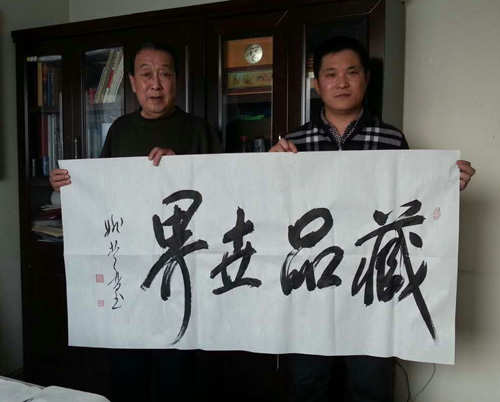 藏品世界